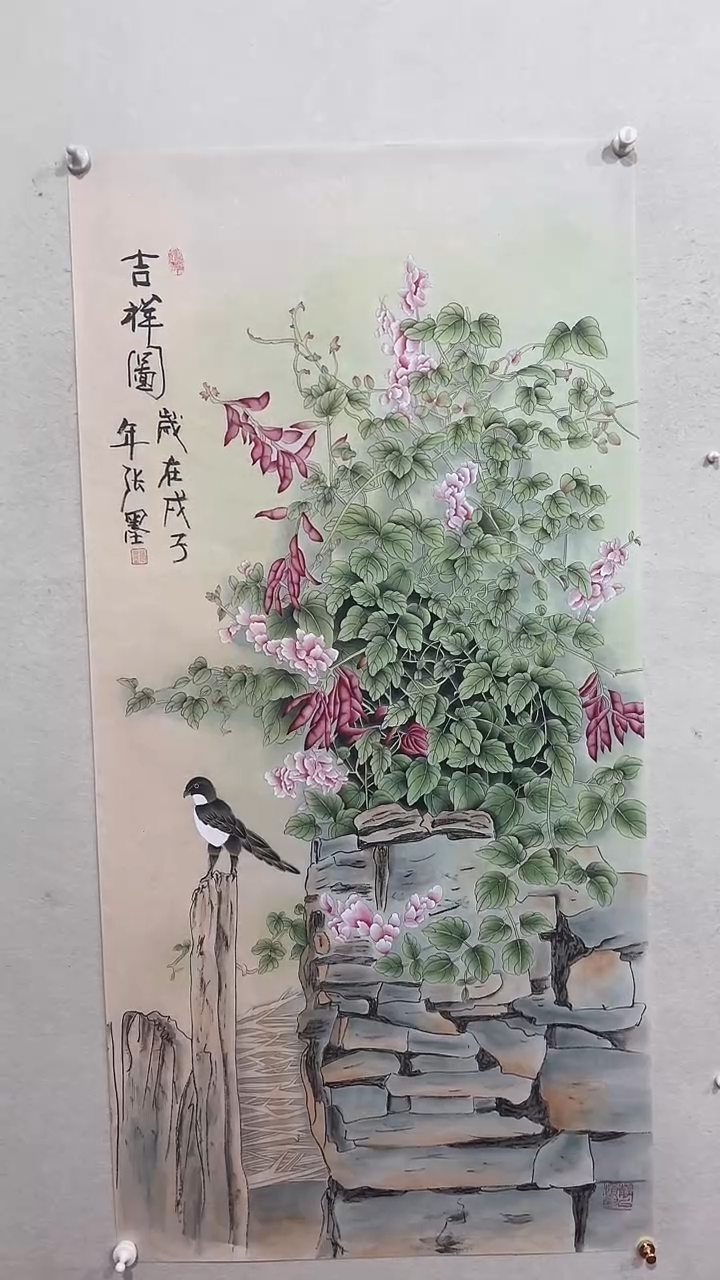 吉祥圖
歲在戊子
年张墨